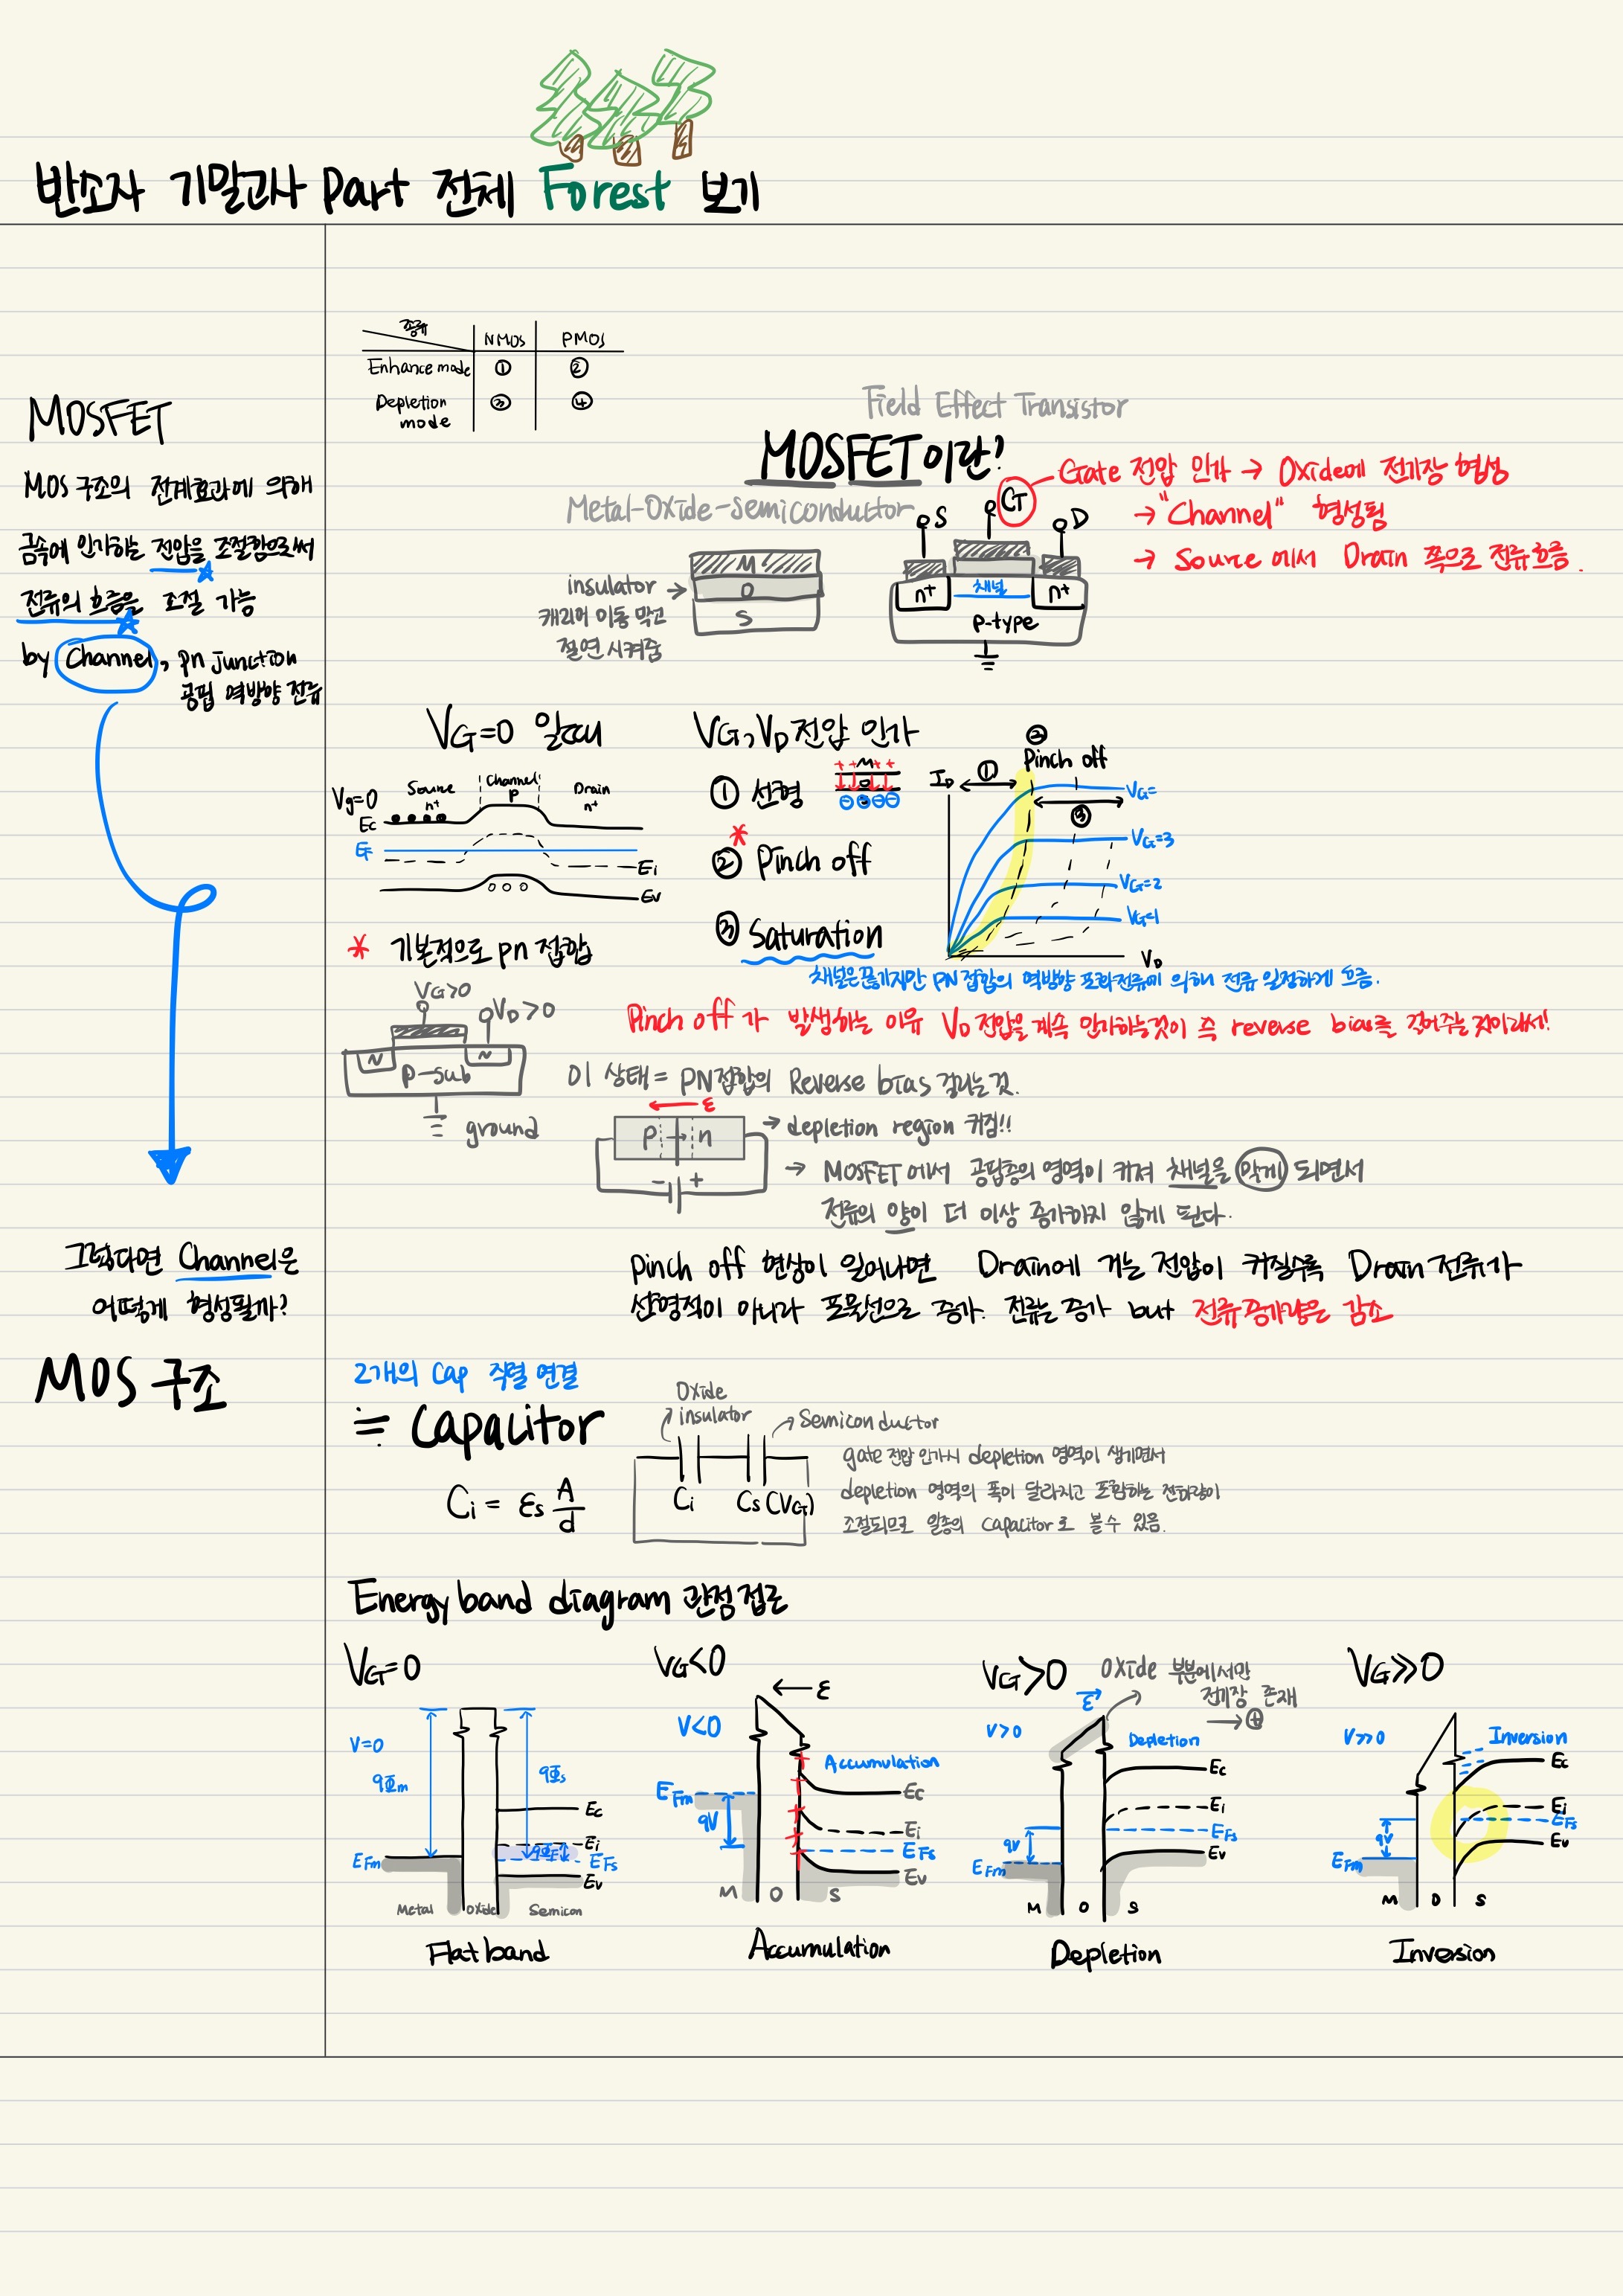 반소자 기말고사 Part 전체 Forest 보기
종류 NMOS PMOS
Enhance mode ① ②
Depletion mode ③ ④
MOSFET
MOS 구조의 전계효과에 의해
금속에 인가하는 전압을 조절함으로써
전류의 흐름을 조절 가능
by Channel, pn junction
공핍 역방향 전류
Field Effect Transistor
MOSFET이란?
Metal-Oxide-Semiconductor
insulator →
캐리어 이동 막고
절연 시켜줌
M
O
S
S G D
n+ 채널 n+
p-type
Gate 전압 인가 → Oxide에 전기장 형성
→ "Channel" 형성됨
→ Source 에서 Drain 쪽으로 전류흐름.
VG=0 일때
Vg=0
Source n+
Channel P
Drain n+
Ec
EF
Ei
Ev
* 기본적으로 pn 접합
VG, VD 전압 인가
① 선형
+ + + +
M
O
⊖⊖⊖⊖
*
② Pinch off
③ Saturation
②
Pinch off
ID ①
③
VG=
VG=3
VG=2
VG=1
VD
채널은 끊기지만 PN 접합의 역방향 포화전류에 의해 전류 일정하게 흐름.
Pinch off 가 발생하는 이유 VD 전압을 계속 인가하는것이 즉 reverse bias를 걸어주는 것이라서!
VG>0
VD>0
N N
P-sub
ground
이 상태 = PN접합의 Reverse bias 걸리는 것.
← ε
P → n
- +
→ depletion region 커짐!!
→ MOSFET 에서 공핍층의 영역이 커져 채널을 막게 되면서
전류의 양이 더 이상 증가하지 않게 된다.
Pinch off 현상이 일어나면 Drain에 거는 전압이 커질수록 Drain 전류가
선형적이 아니라 포물선으로 증가. 전류는 증가 but 전류증가량은 감소
그렇다면 Channel은
어떻게 형성될까?
MOS 구조
2개의 Cap 직렬 연결
≒ Capacitor
Ci = εs A/d
Oxide
insulator
Semiconductor
Ci Cs(VG)
gate 전압 인가시 depletion 영역이 생기면서
depletion 영역의 폭이 달라지고 포함하는 전하량이
조절되므로 일종의 Capacitor로 볼 수 있음.
Energy band diagram 관점 접근
VG=0
V=0
qΦm
qΦs
Ec
Ei
qΦF
EFm
EFs
Ev
Metal Oxide Semicon
Flat band
VG<0
← ε
V<0
Accumulation
EFm
qV
Ec
Ei
EFs
Ev
M O S
Accumulation
VG>0
ε
Oxide 부분에서만
전기장 존재
→ ⊕
V>0
Depletion
Ec
Ei
EFs
qV
EFm
Ev
M O S
Depletion
VG≫0
V≫0
Inversion
Ec
Ei
EFs
qV
Ev
EFm
M O S
Inversion